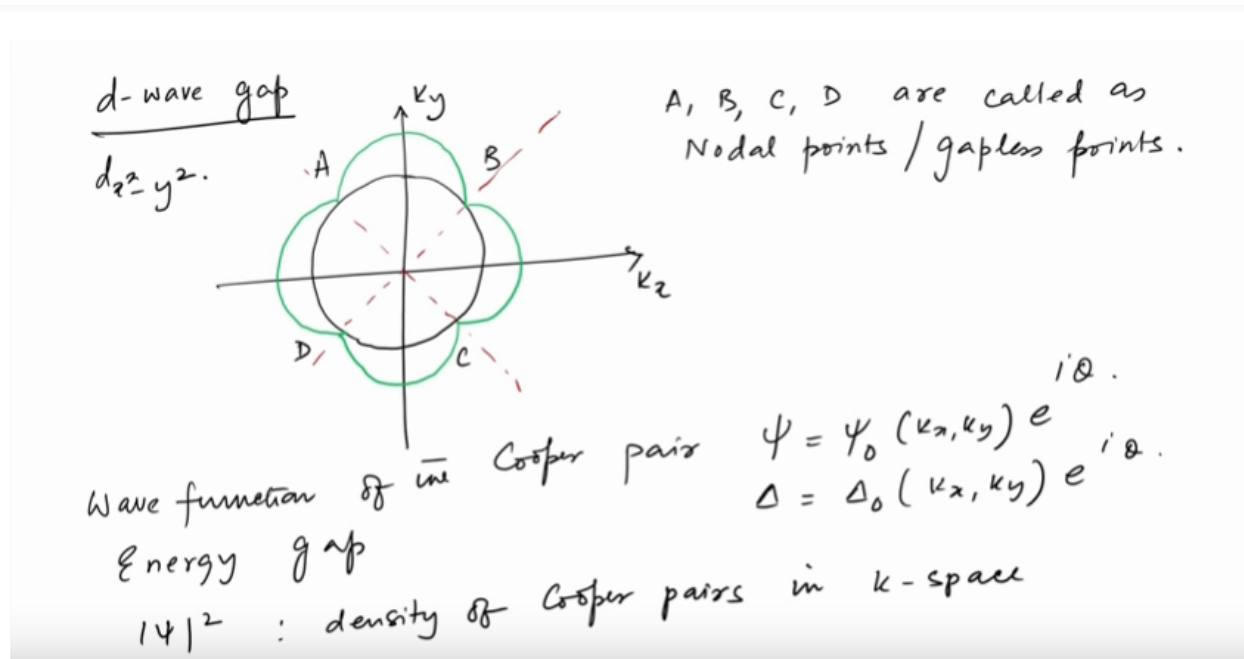 d-wave gap
d_{x²-y²}.
Ky
A
B
Kx
D
C
A, B, C, D are called as
Nodal points / gapless points.
Wave function of the Cooper pair ψ = ψ₀ (kx, ky) e^{iθ}.
Energy gap Δ = Δ₀ (kx, ky) e^{iθ}.
|ψ|² : density of Cooper pairs in k-space